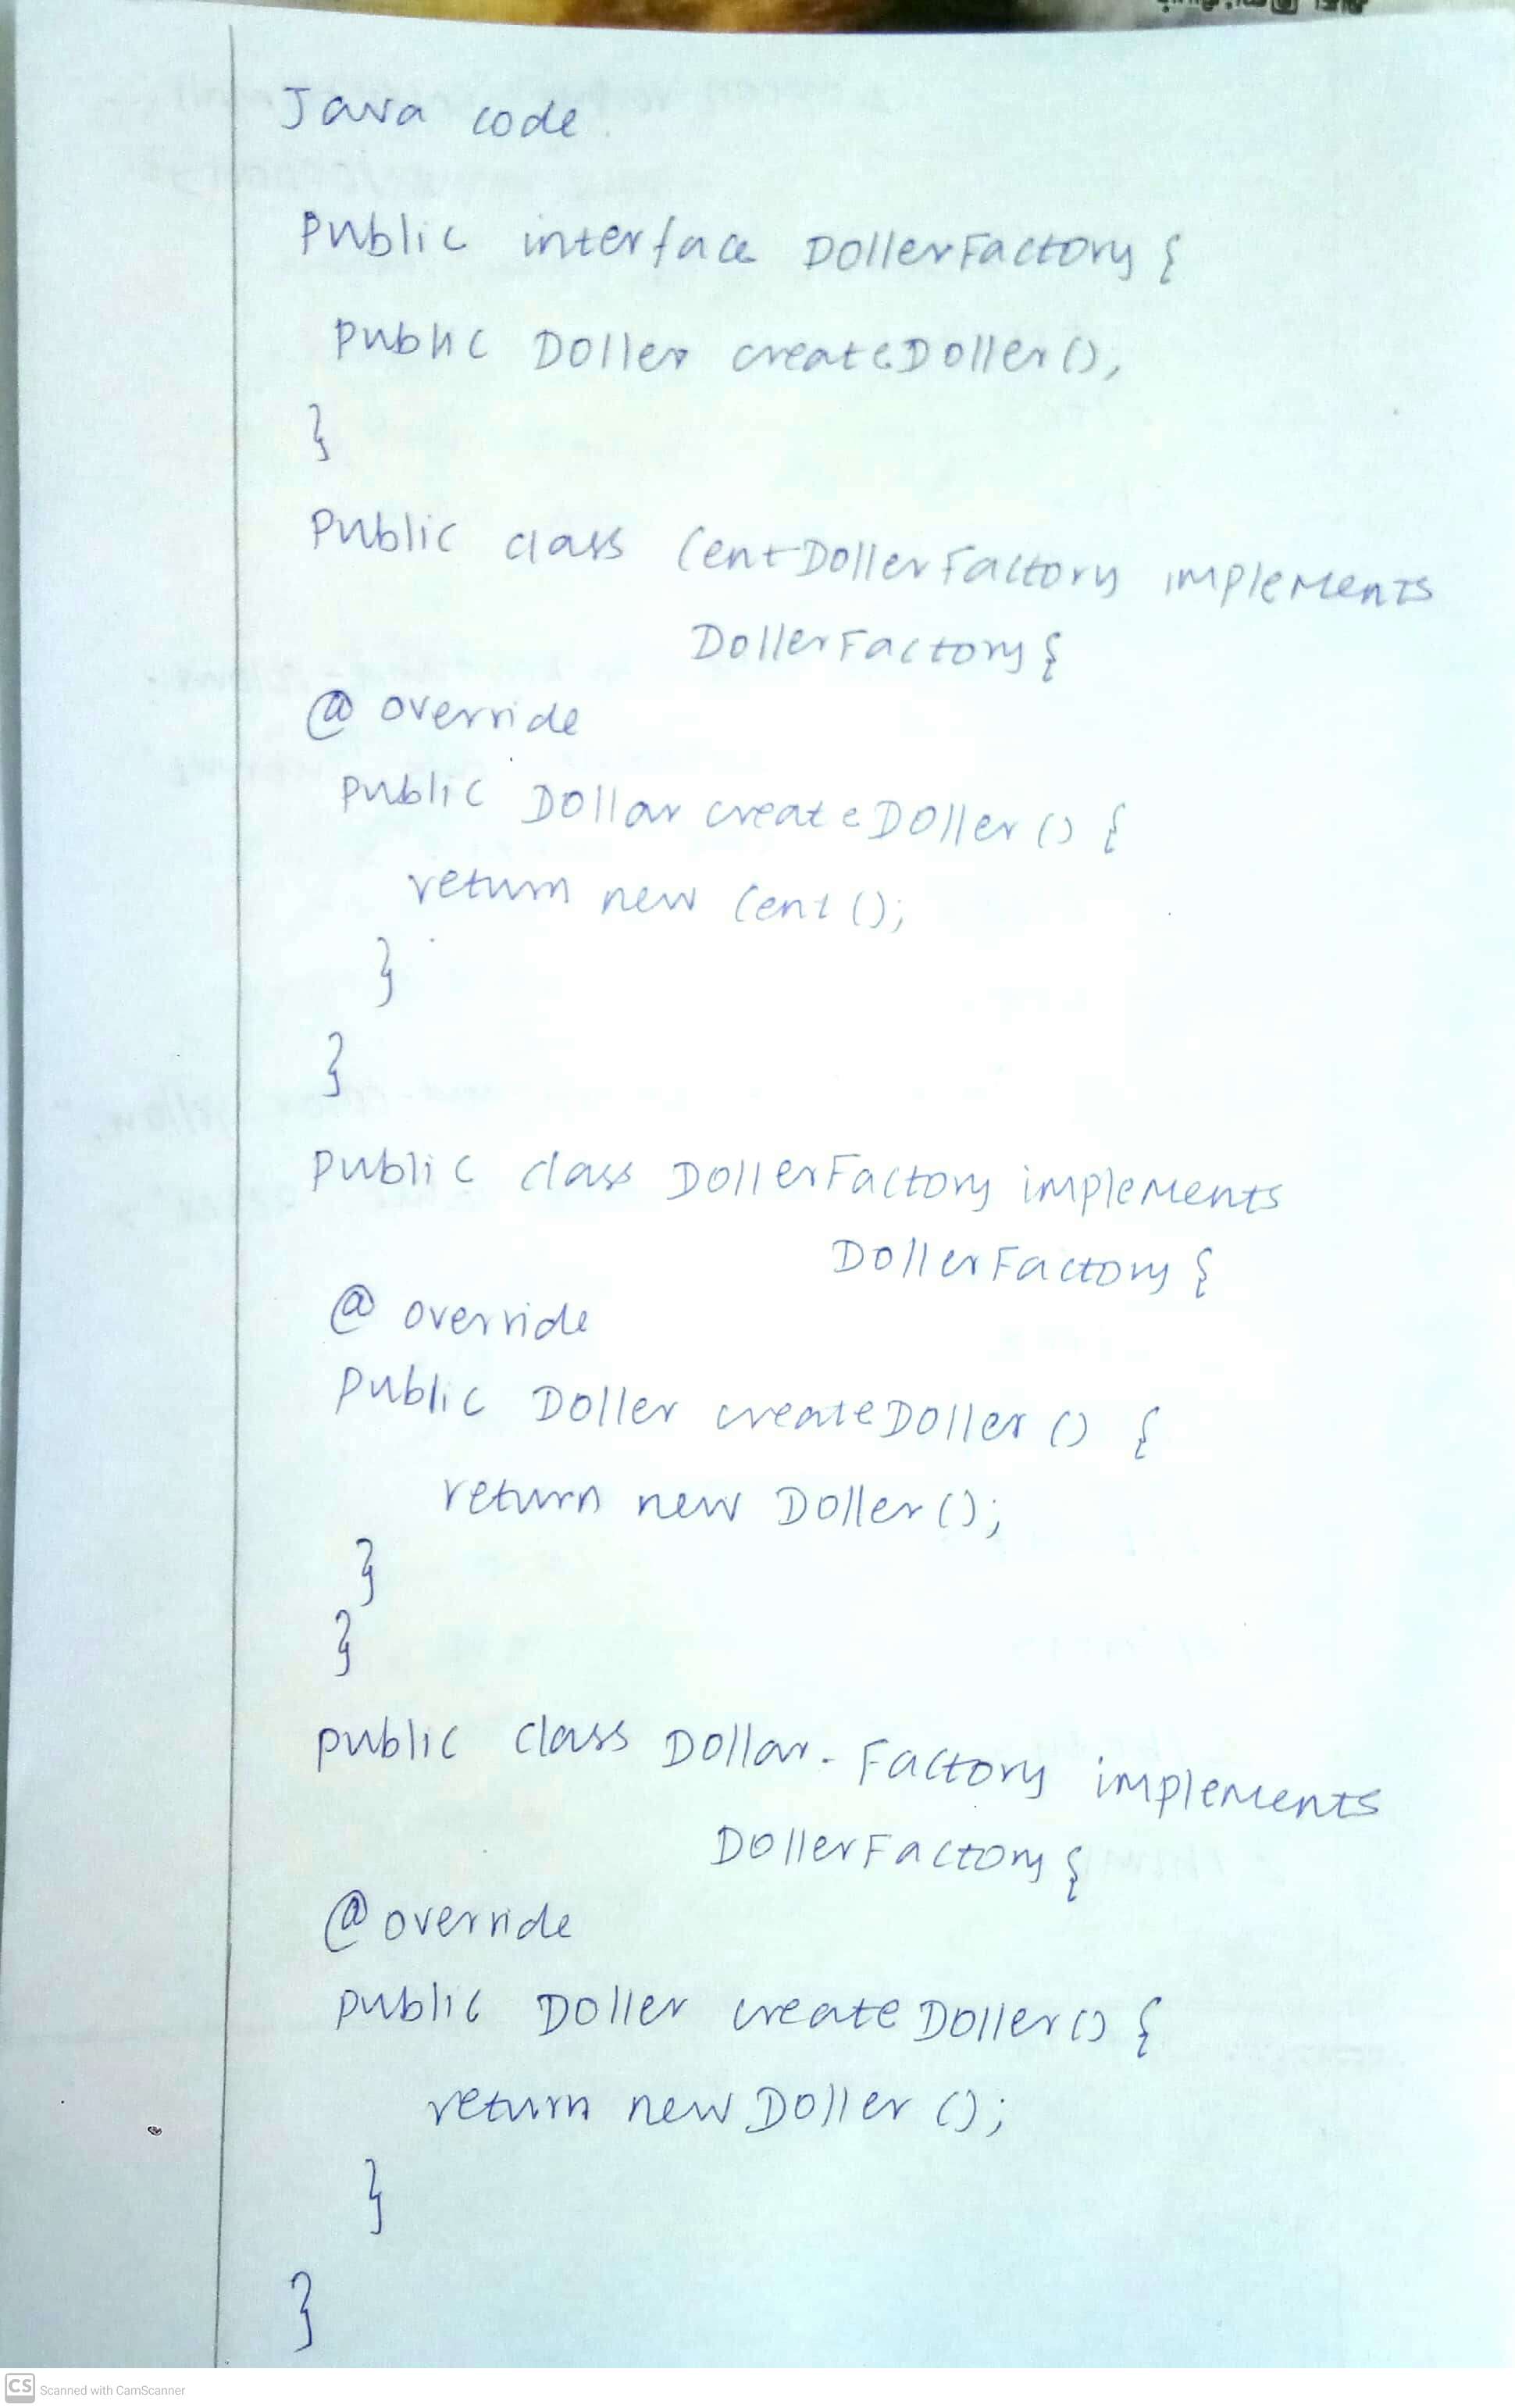 Java code.
Public interface DollerFactory {
Public Doller createDoller(),
}
Public class CentDollerFactory implements
DollerFactory {
@ override
public Dollar createDoller () {
return new Cent ();
}
}
public class DollerFactory implements
DollerFactory {
@ override
Public Doller createDoller () {
return new Doller ();
}
}
public class Dollar-Factory implements
DollerFactory {
@override
public Doller createDoller () {
return new Doller ();
}
}
CS Scanned with CamScanner